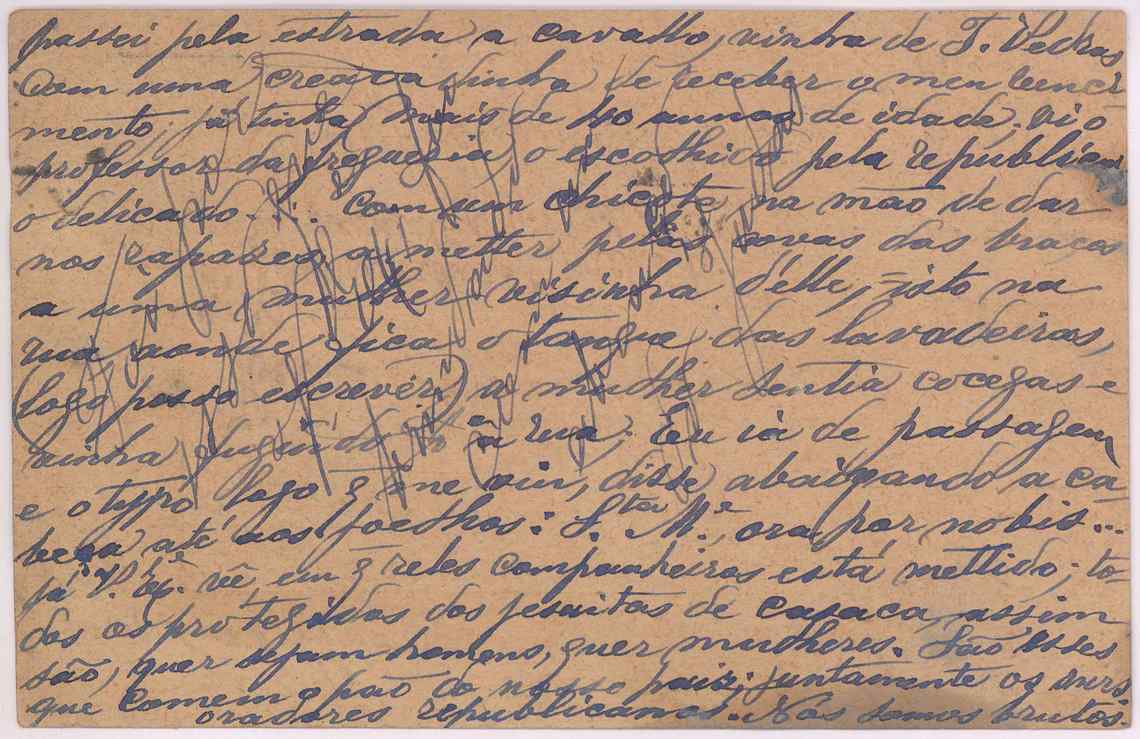 passei pela estrada a cavallo, vinha de T. Vedras
com uma creaça vinha de receber o meu venci
mento; já tinha mais de 40 annos de idade. Vi o
professor da freguezia, o escolhido pela republica
o delicado.... com um chicote na mão de dar
nos rapazes a metter pelas covas dos braços
a uma mulher visinha d'elle, isto na
rua aonde fica o tanque das lavadeiras,
(logo posso escrever) a mulher sentia cocegas e
vinha fugindo à rua; Eu ia de passagem
e o typo logo q me viu, disse abaixando a ca-
beça até aos joelhos: S.ta M.e, ora pro nobis...
já V. Ex.ª vê em q reles companheiros está mettido; to-
dos os protegidos dos jesuitas de casaca, assim
são, quer sejam homens, quer mulheres. São esses
que comem o pão do nosso paiz, juntamente os
oradores republicanos. Nós somos brutos.